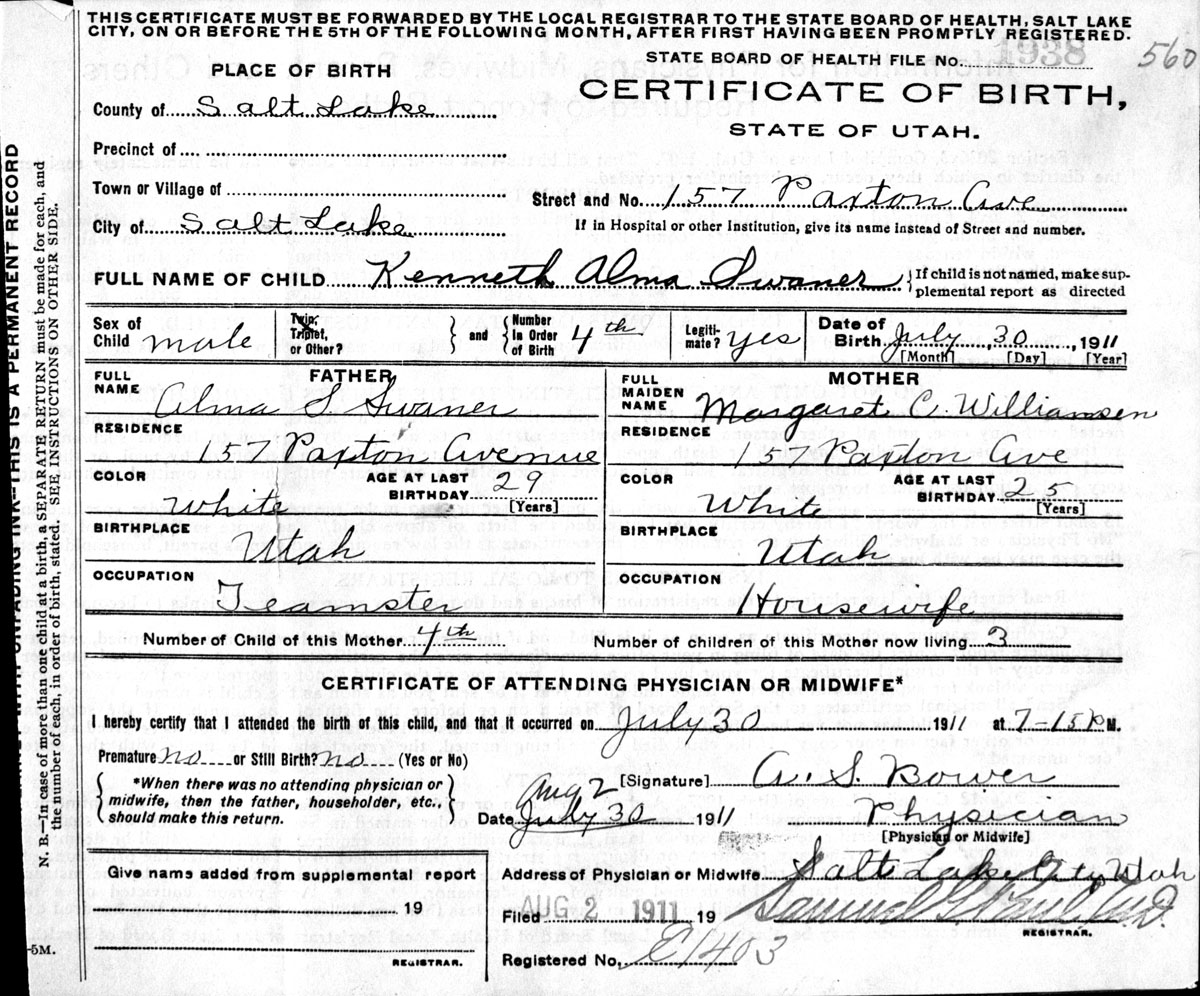 THIS CERTIFICATE MUST BE FORWARDED BY THE LOCAL REGISTRAR TO THE STATE BOARD OF HEALTH, SALT LAKE
CITY, ON OR BEFORE THE 5TH OF THE FOLLOWING MONTH, AFTER FIRST HAVING BEEN PROMPTLY REGISTERED.
560
STATE BOARD OF HEALTH FILE No. 1938
PLACE OF BIRTH
CERTIFICATE OF BIRTH,
STATE OF UTAH.
County of Salt Lake
Precinct of
Town or Village of
Street and No. 157 Paxton Ave
City of Salt Lake
If in Hospital or other Institution, give its name instead of Street and number.
FULL NAME OF CHILD Kenneth Alma Swaner
{If child is not named, make sup-
plemental report as directed
Sex of Child male
Twin, Triplet, or Other?
and
Number in Order of Birth 4th
Legiti-mate? yes
Date of Birth July 30, 1911
[Month] [Day] [Year]
FATHER
FULL NAME
Alma S. Swaner
RESIDENCE
157 Paxton Avenue
COLOR
White
AGE AT LAST BIRTHDAY 29
[Years]
BIRTHPLACE
Utah
OCCUPATION
Teamster
MOTHER
FULL MAIDEN NAME
Margaret C. Williamsen
RESIDENCE
157 Paxton Ave
COLOR
White
AGE AT LAST BIRTHDAY 25
[Years]
BIRTHPLACE
Utah
OCCUPATION
Housewife
Number of Child of this Mother 4th
Number of children of this Mother now living 3
CERTIFICATE OF ATTENDING PHYSICIAN OR MIDWIFE*
I hereby certify that I attended the birth of this child, and that it occurred on July 30 1911 at 7-15 P M.
Premature no or Still Birth? no (Yes or No)
*When there was no attending physician or
midwife, then the father, householder, etc.,
should make this return.
[Signature] A. S. Bower
Aug 2
Date July 30 1911
Physician
[Physician or Midwife]
Give name added from supplemental report
19
REGISTRAR.
Address of Physician or Midwife Salt Lake City Utah
Filed AUG 2 1911 19
Samuel
REGISTRAR.
Registered No. E1403
-5M.
THIS IS A PERMANENT RECORD
N. B.—In case of more than one child at a birth, a SEPARATE RETURN must be made for each, and
the number of each, in order of birth, stated. SEE INSTRUCTIONS ON OTHER SIDE.